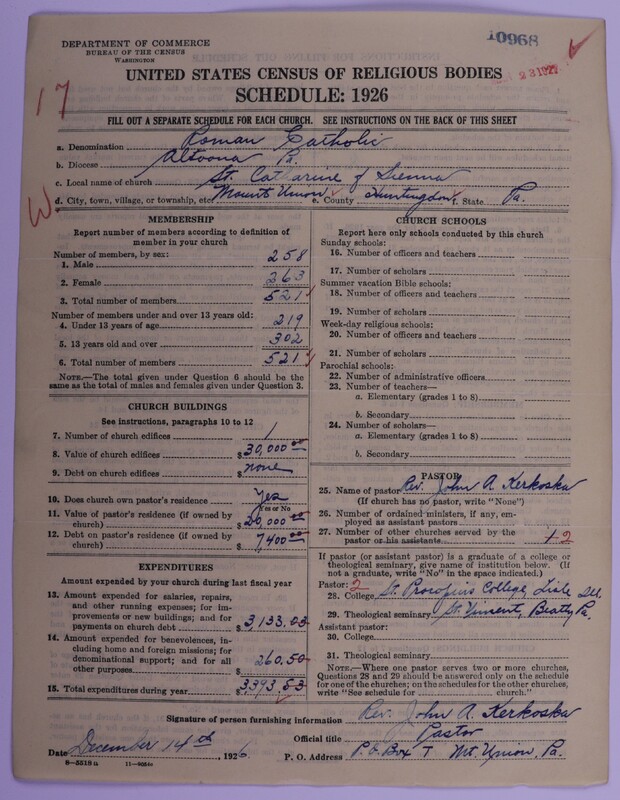 DEPARTMENT OF COMMERCE
BUREAU OF THE CENSUS
WASHINGTON
10968
23 1927
UNITED STATES CENSUS OF RELIGIOUS BODIES
SCHEDULE: 1926
17
FILL OUT A SEPARATE SCHEDULE FOR EACH CHURCH. SEE INSTRUCTIONS ON THE BACK OF THIS SHEET
a. Denomination Roman Catholic
b. Diocese Altoona Pa.
c. Local name of church St. Catharine of Sienna
d. City, town, village, or township, etc. Mount Union e. County Huntingdon f. State Pa.
W
MEMBERSHIP
Report number of members according to definition of member in your church
Number of members, by sex:
1. Male 258
2. Female 263
3. Total number of members 521
Number of members under and over 13 years old:
4. Under 13 years of age 219
5. 13 years old and over 302
6. Total number of members 521
NOTE.—The total given under Question 6 should be
same as the total of males and females given under Question 3.
CHURCH BUILDINGS
See instructions, paragraphs 10 to 12
7. Number of church edifices 1
8. Value of church edifices $30,000 00
9. Debt on church edifices $ none
10. Does church own pastor's residence Yes
Yes or No
11. Value of pastor's residence (if owned by
church) $20,000 00
12. Debt on pastor's residence (if owned by
church) $7400 00
EXPENDITURES
Amount expended by your church during last fiscal year
13. Amount expended for salaries, repairs,
and other running expenses; for im-
provements or new buildings; and for
payments on church debt $3,133.03
14. Amount expended for benevolences, in-
cluding home and foreign missions; for
denominational support; and for all
other purposes $260.50
15. Total expenditures during year $3393.53
CHURCH SCHOOLS
Report here only schools conducted by this church
Sunday schools:
16. Number of officers and teachers
17. Number of scholars
Summer vacation Bible schools:
18. Number of officers and teachers
19. Number of scholars
Week-day religious schools:
20. Number of officers and teachers
21. Number of scholars
Parochial schools:
22. Number of administrative officers
23. Number of teachers—
a. Elementary (grades 1 to 8)
b. Secondary
24. Number of scholars—
a. Elementary (grades 1 to 8)
b. Secondary
PASTOR
25. Name of pastor Rev. John A. Kerkoska
(If church has no pastor, write "None")
26. Number of ordained ministers, if any, em-
ployed as assistant pastors
27. Number of other churches served by the
pastor or his assistants 2
If pastor (or assistant pastor) is a graduate of a college or
theological seminary, give name of institution below. (If
not a graduate, write "No" in the space indicated.)
Pastor: 2
28. College St. Procopius College, Lisle Ill.
29. Theological seminary St. Vincent, Beatty Pa.
Assistant pastor:
30. College
31. Theological seminary
NOTE.—Where one pastor serves two or more churches,
Questions 28 and 29 should be answered only on the schedule
for one of the churches; on the schedules for the other churches,
write "See schedule for church."
Signature of person furnishing information Rev. John A. Kerkoska
Official title Pastor
Date December 14th, 1926 P. O. Address P.O. Box T Mt. Union, Pa.
8—5318a 11—9084c